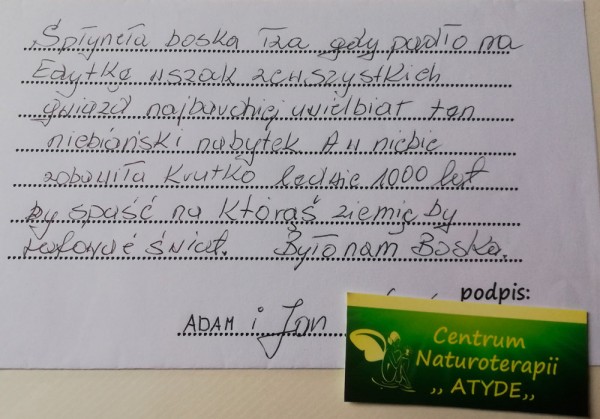 Spłyneła boska łza gdy padło na
Edytkę wszak zewszystkich
gwiazd najbardziej uwielbiał ten
niebiański nabytek A w niebie
zabawiła Krutko ledwie 1000 lat
by spaść na Którąś ziemię by
świat. Było nam Boska.
podpis:
ADAM i Jon
Centrum
Naturoterapii
,, ATYDE,,